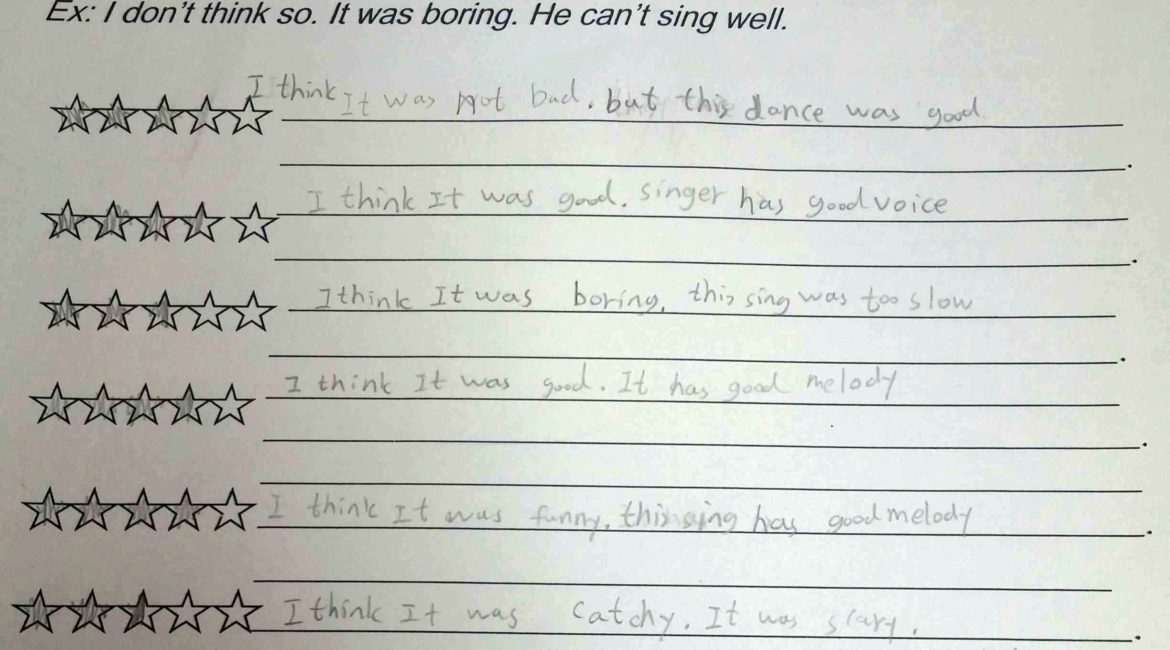 Ex: I don't think so. It was boring. He can't sing well.
I think It was not bad. but this dance was good
I think It was good. singer has good voice
I think It was boring, this sing was too slow
I think It was good. It has good melody
I think It was funny, this sing has good melody
I think It was catchy. It was scary.